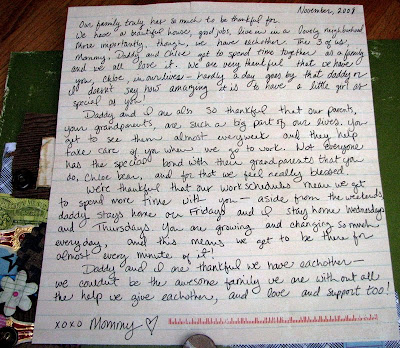 November, 2009
Our family truly has so much to be thankful for.
We have a beautiful house, good jobs, live in a lovely neighborhood
More importantly, though, we have eachother. The 3 of us,
Mommy, Daddy and Chloe get to spend time together as a family
and we all love it. We are very thankful that we have
you, Chloe, in our lives - hardly a day goes by that daddy or
I doesn't say how amazing it is to have a little girl as
special as you!
Daddy and I are also so thankful that our parents,
your grandparents, are such a big part of our lives. You
get to see them almost everyweek and they help
take care of you when we go to work. Not everyone
has the special bond with their grandparents that you
do, Chloe bear, and for that we feel really blessed.
We're thankful that our work schedules mean we get
to spend more time with you - aside from the weekends,
daddy stays home on Fridays and I stay home Wednesdays
and Thursdays. You are growing and changing so much
everyday, and this means we get to be there for
almost every minute of it!
Daddy and I are thankful we have eachother -
we couldn't be the awesome family we are without all
the help we give eachother, and love and support too!
xoxo Mommy ♡